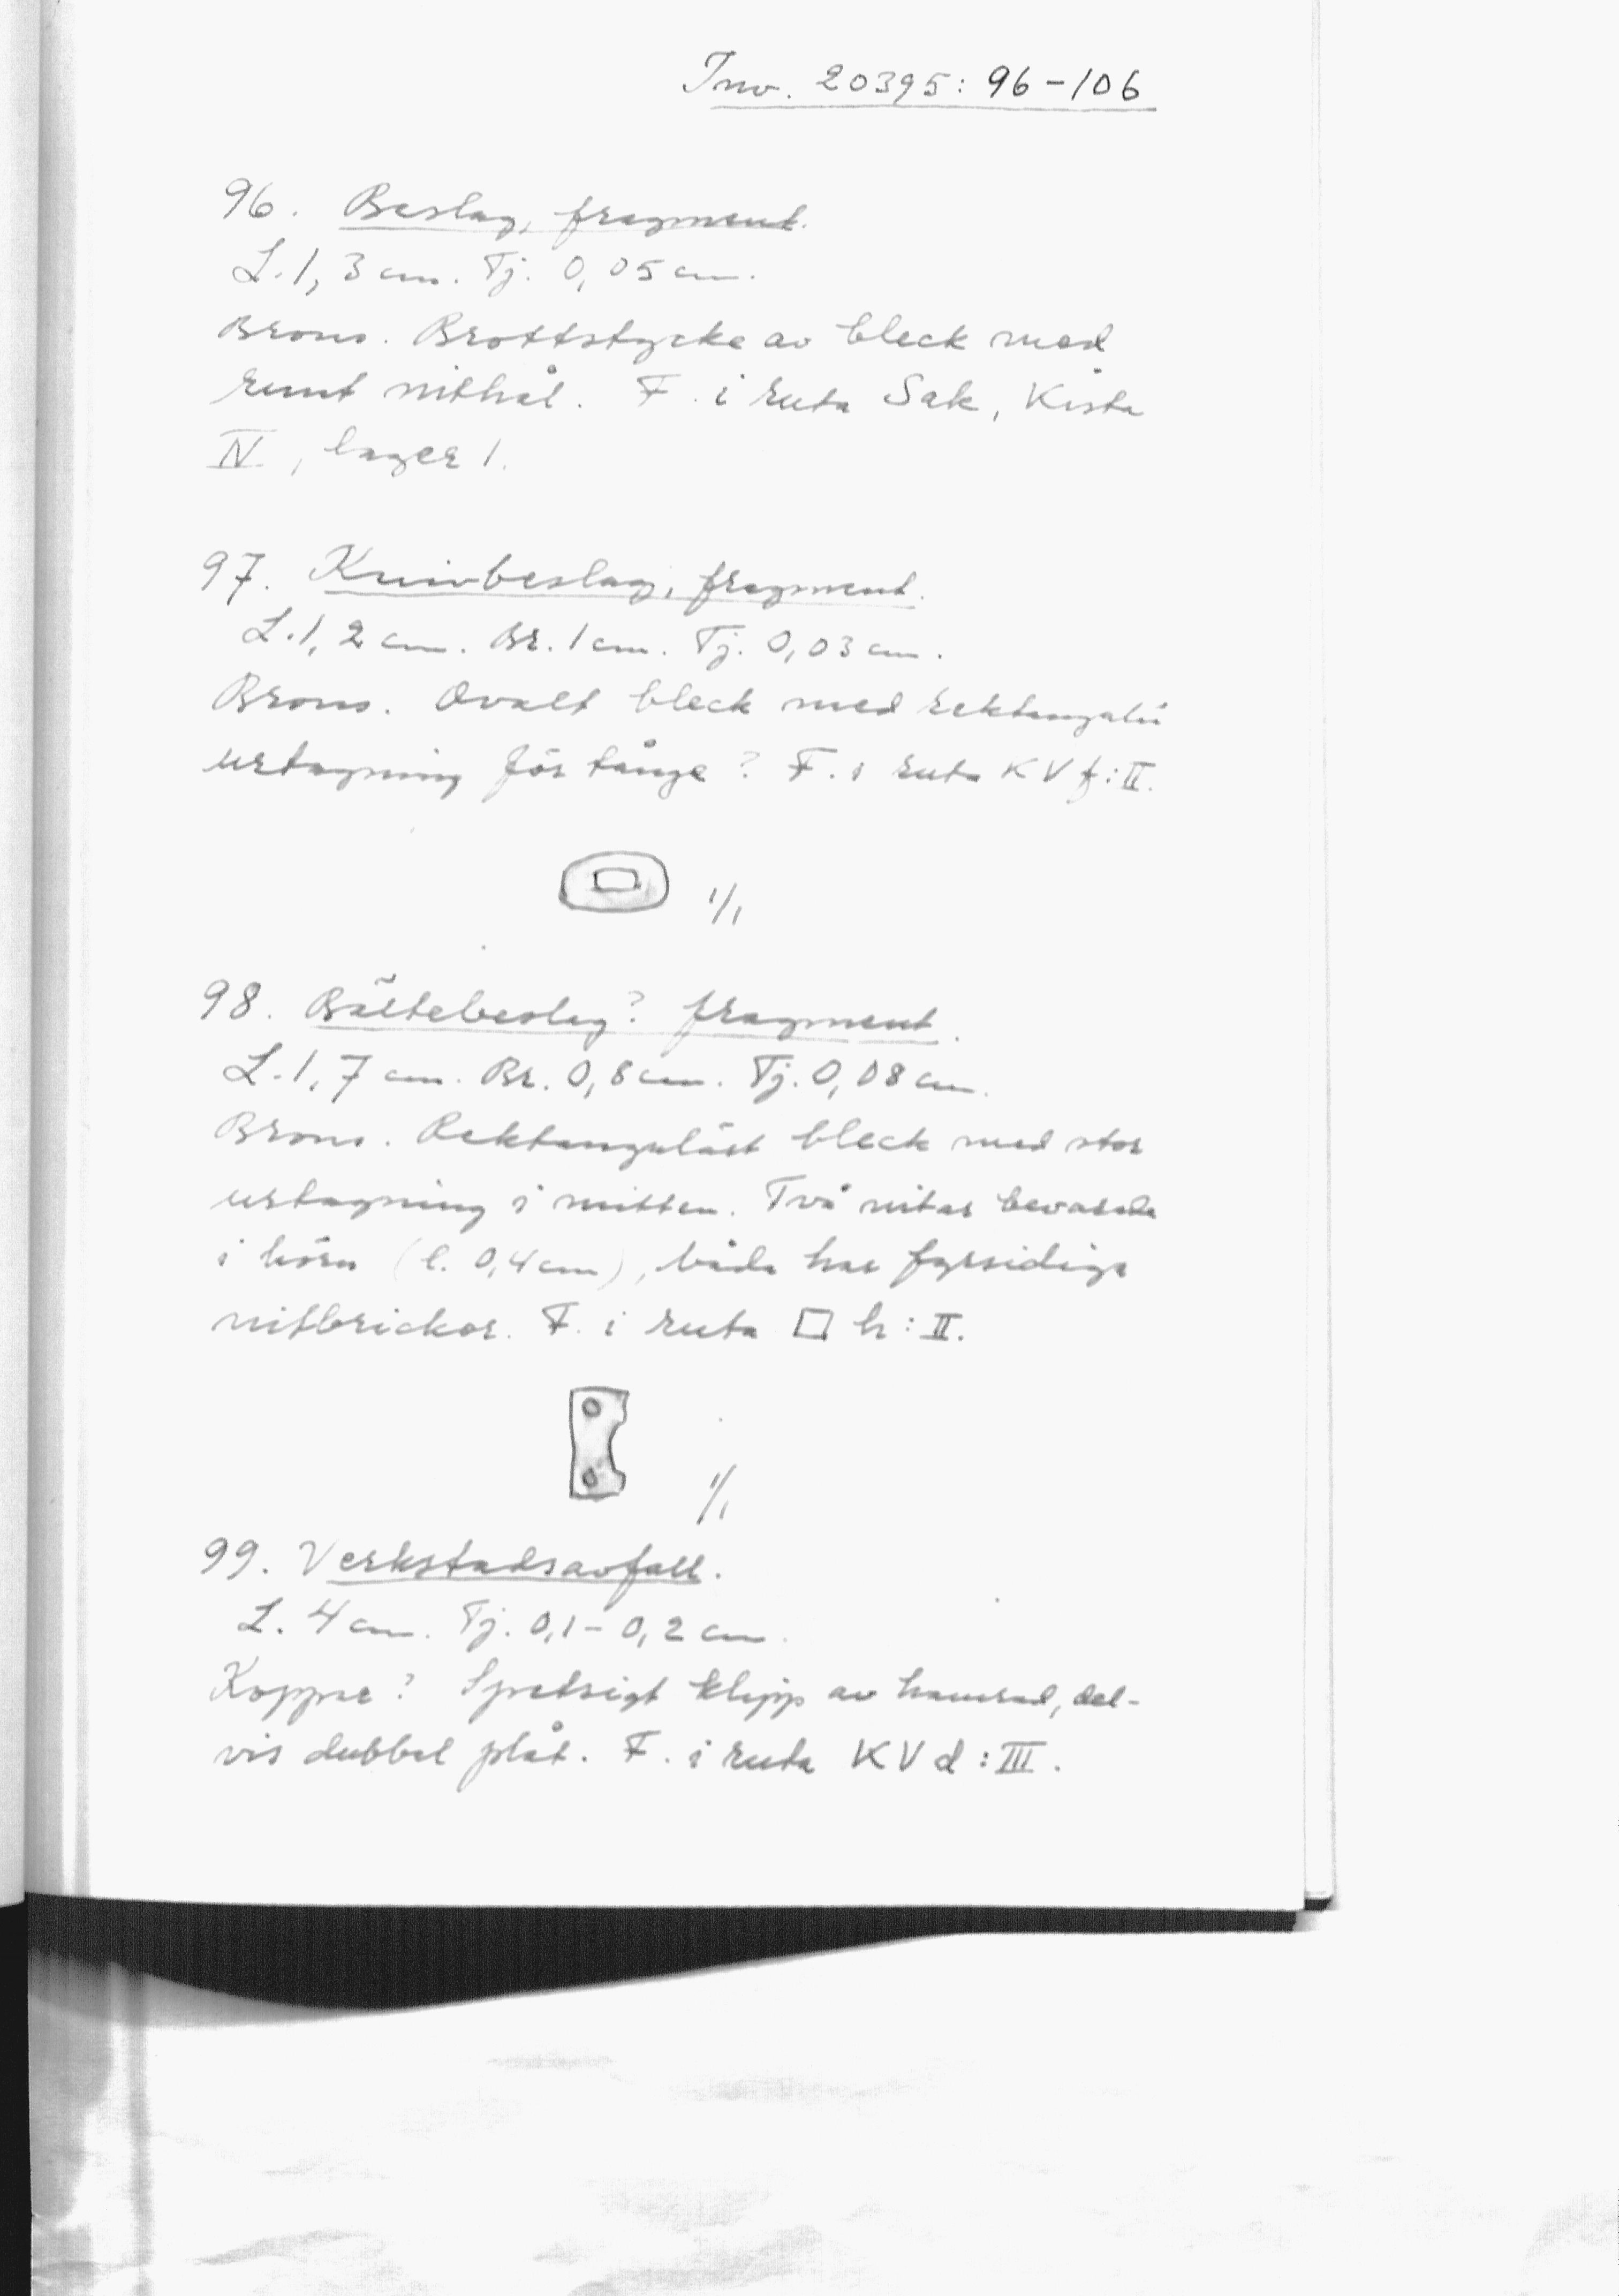 Inv. 20395: 96-106
96. Beslag, fragment.
L. 1,3 cm. Tj. 0,05 cm.
Brons. Brottstycke av bleck med
runt nithål. F. i ruta Sak, Kista
IV, lager 1.
97. Knivbeslag, fragment.
L. 1,2 cm. Br. 1 cm. Tj. 0,03 cm.
Brons. Ovalt bleck med rektangulär
urtagning för tånge? F. i ruta KV f:II.
1/1
98. Bältebeslag? fragment.
L. 1,7 cm. Br. 0,8 cm. Tj. 0,08 cm.
Brons. Rektangulärt bleck med stor
urtagning i mitten. Två nitar bevarade
i hörn (l. 0,4 cm), båda har fyrsidiga
nitbrickor. F. i ruta □ h:II.
1/1
99. Verkstadsavfall.
L. 4 cm. Tj. 0,1-0,2 cm.
Koppar? Spetsigt klipp av hamrad, del-
vis dubbel plåt. F. i ruta KV d:III.